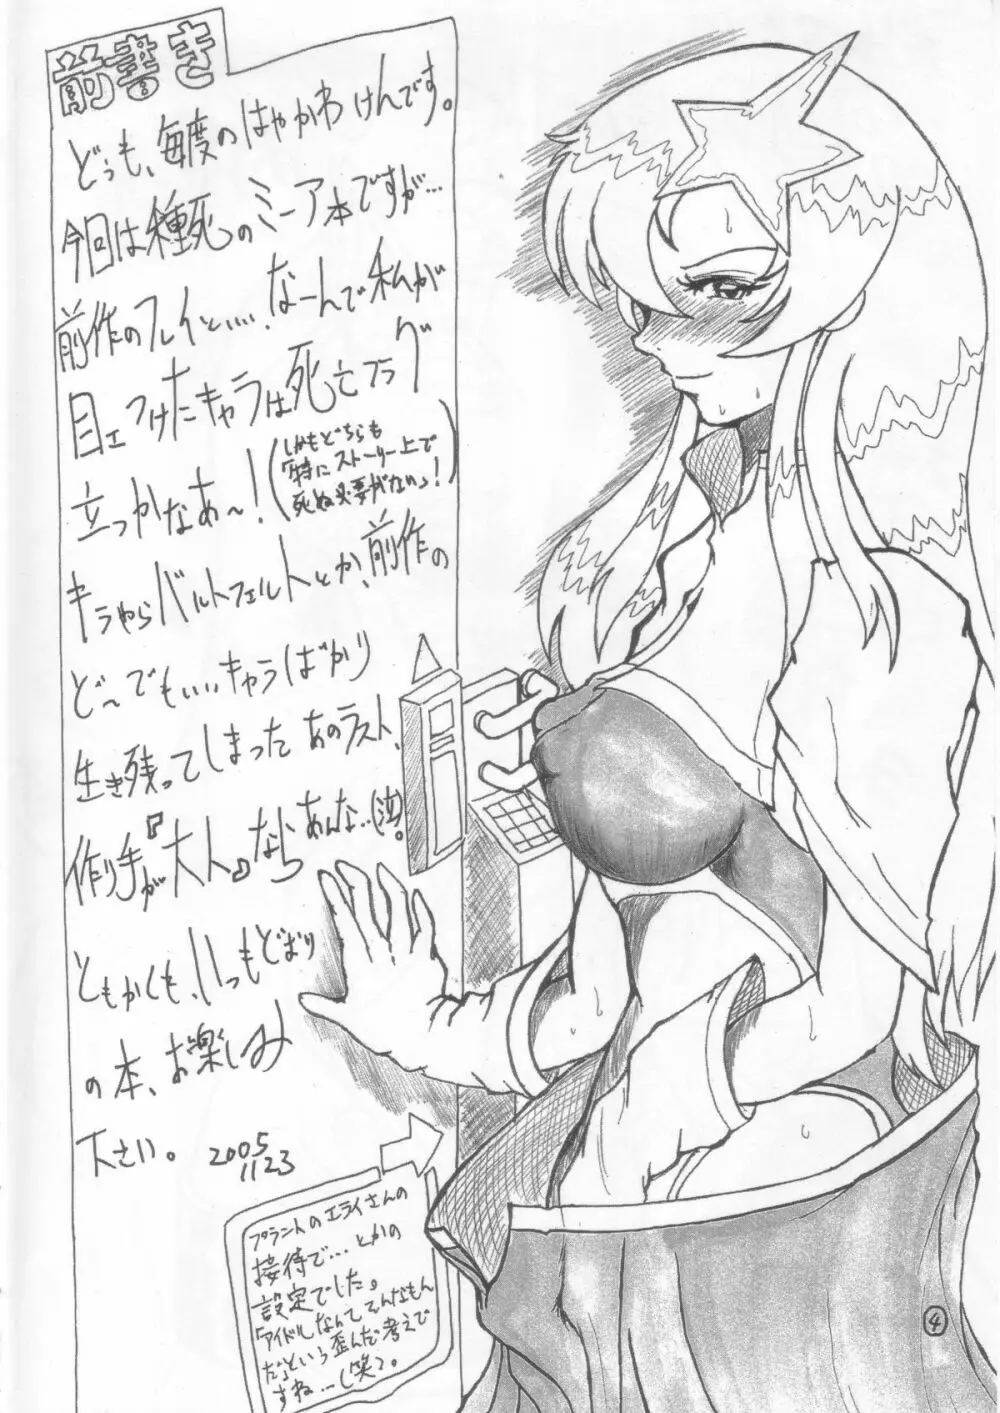 前書き
どうも、毎度のはやかわけんです。
今回は種死のミーア本ですが…
前作のフレイといい、なーんで私が
目ェつけたキャラは死亡フラグ
立つかなあ〜!(しかもどちらも
「特にストーリー上で
死ぬ必要がない」!)
キラやらバルトフェルトとか、前作の
ど〜でもいいキャラばかり
生き残ってしまったあのラスト、
作り手が『大人』ならあんな…(泣)。
ともかくも、いつもどおり
の本、お楽しみ
下さい。 2005
11 23
プラントのエライさんの
接待で…とかの
設定でした。
「アイドルなんてそんなもん
だ」という歪んだ考えで
すね…(笑)。
4